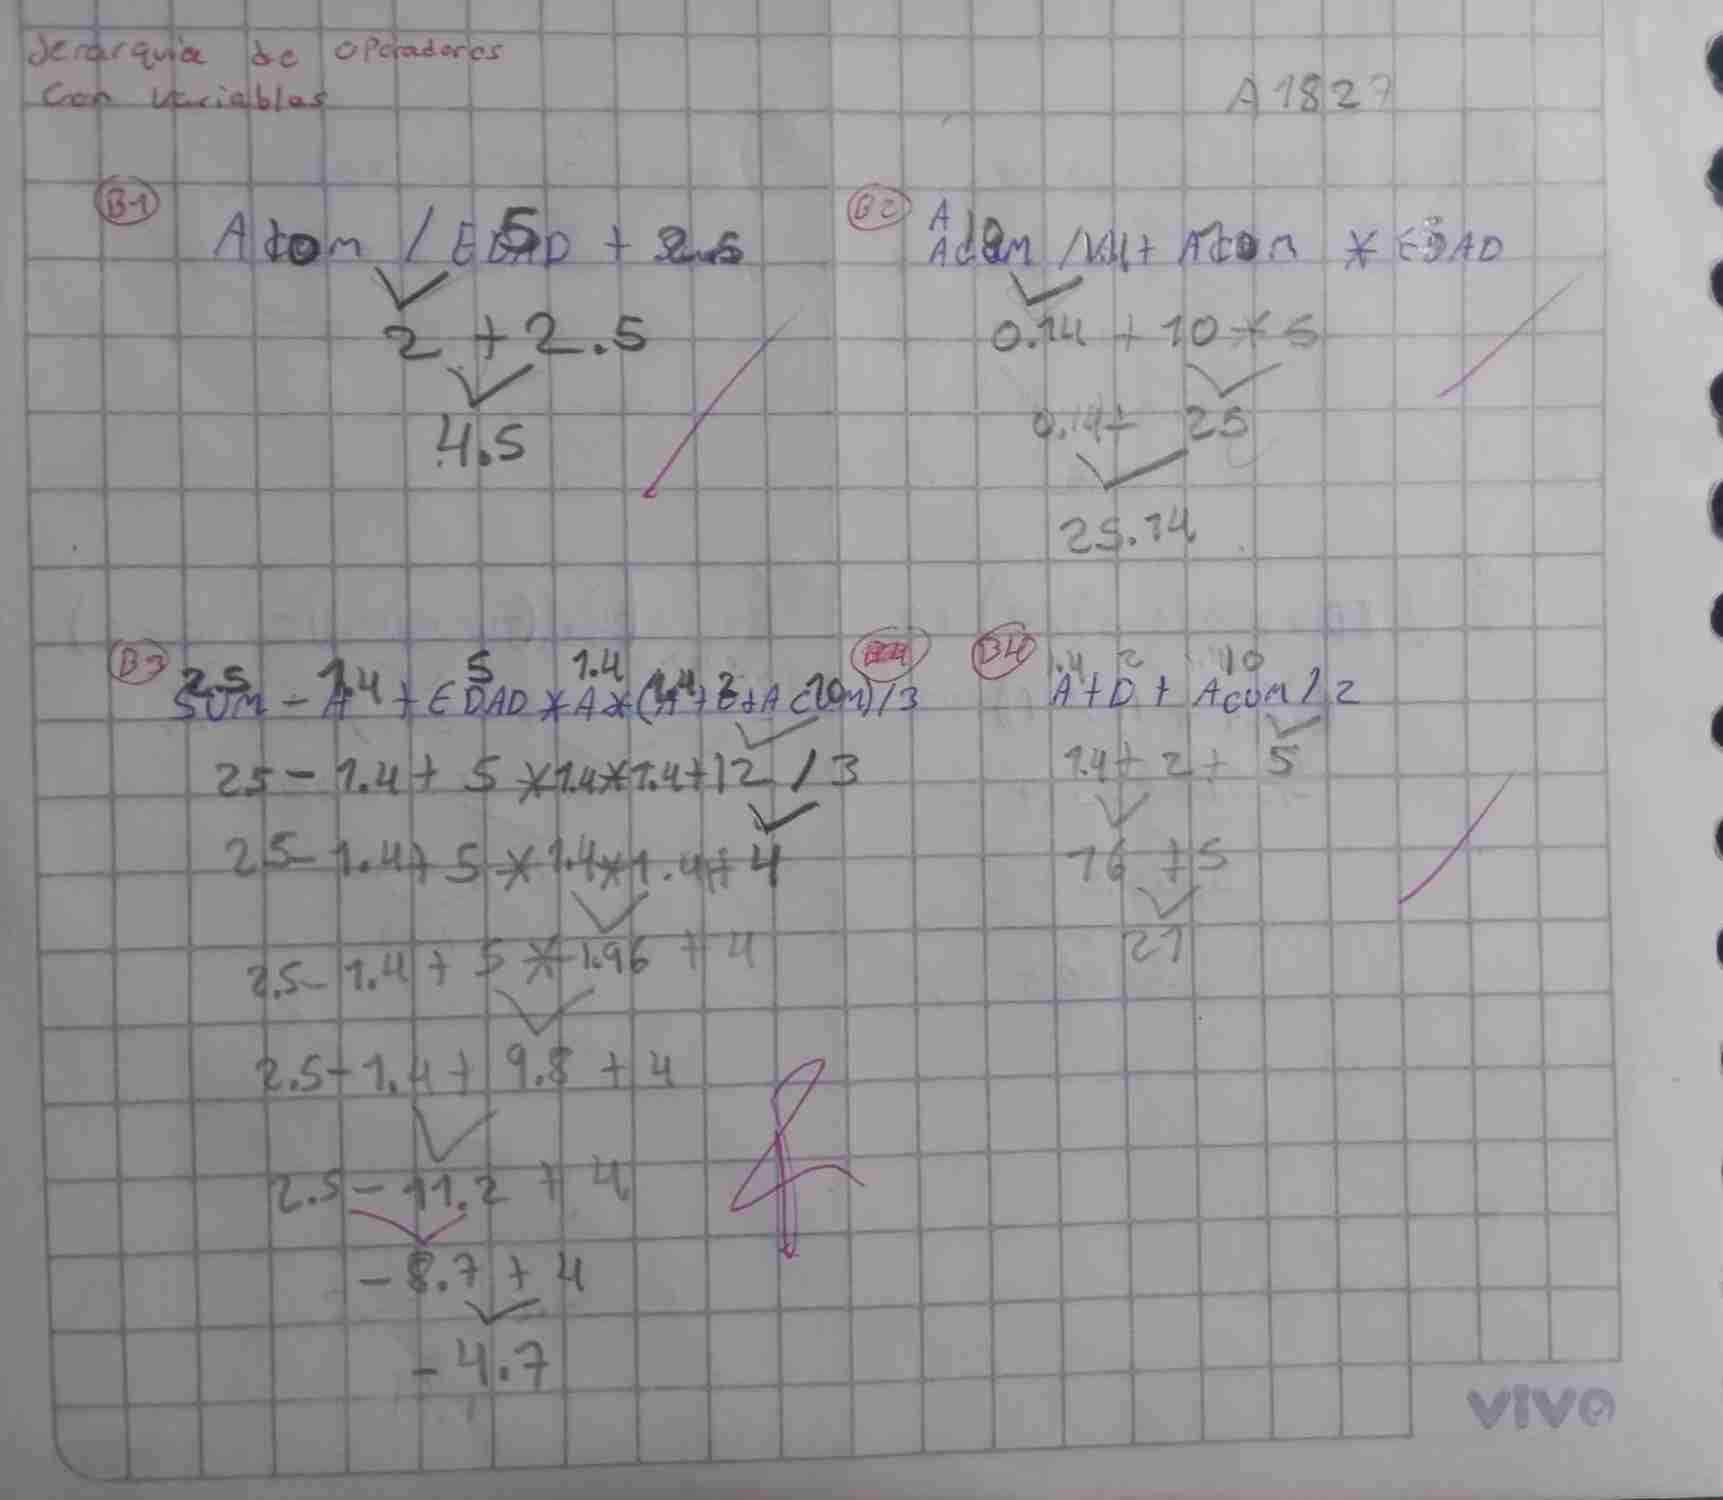 Jerarquia de Operadores
Con variables
A1827
B1
Acom / EDAD + 2.5
5
2 + 2.5
4.5
B2
A
10
Acom / + Acom * EDAD
0.14 + 10 * 5
0.14 + 25
25.14
B3
2.5 1.4 5 1.4 1.4 2 10
SUM - A + EDAD * A * (A + B + ACUM) / 3
25 - 1.4 + 5 * 1.4 * 1.4 + 12 / 3
25 - 1.4 + 5 * 1.4 * 1.4 + 4
2.5 - 1.4 + 5 * 1.96 + 4
2.5 - 1.4 + 9.8 + 4
2.5 - 11.2 + 4
- 8.7 + 4
- 4.7
B4
1.4 2 10
A + D + Acum / 2
1.4 + 2 + 5
16 + 5
21
vivo